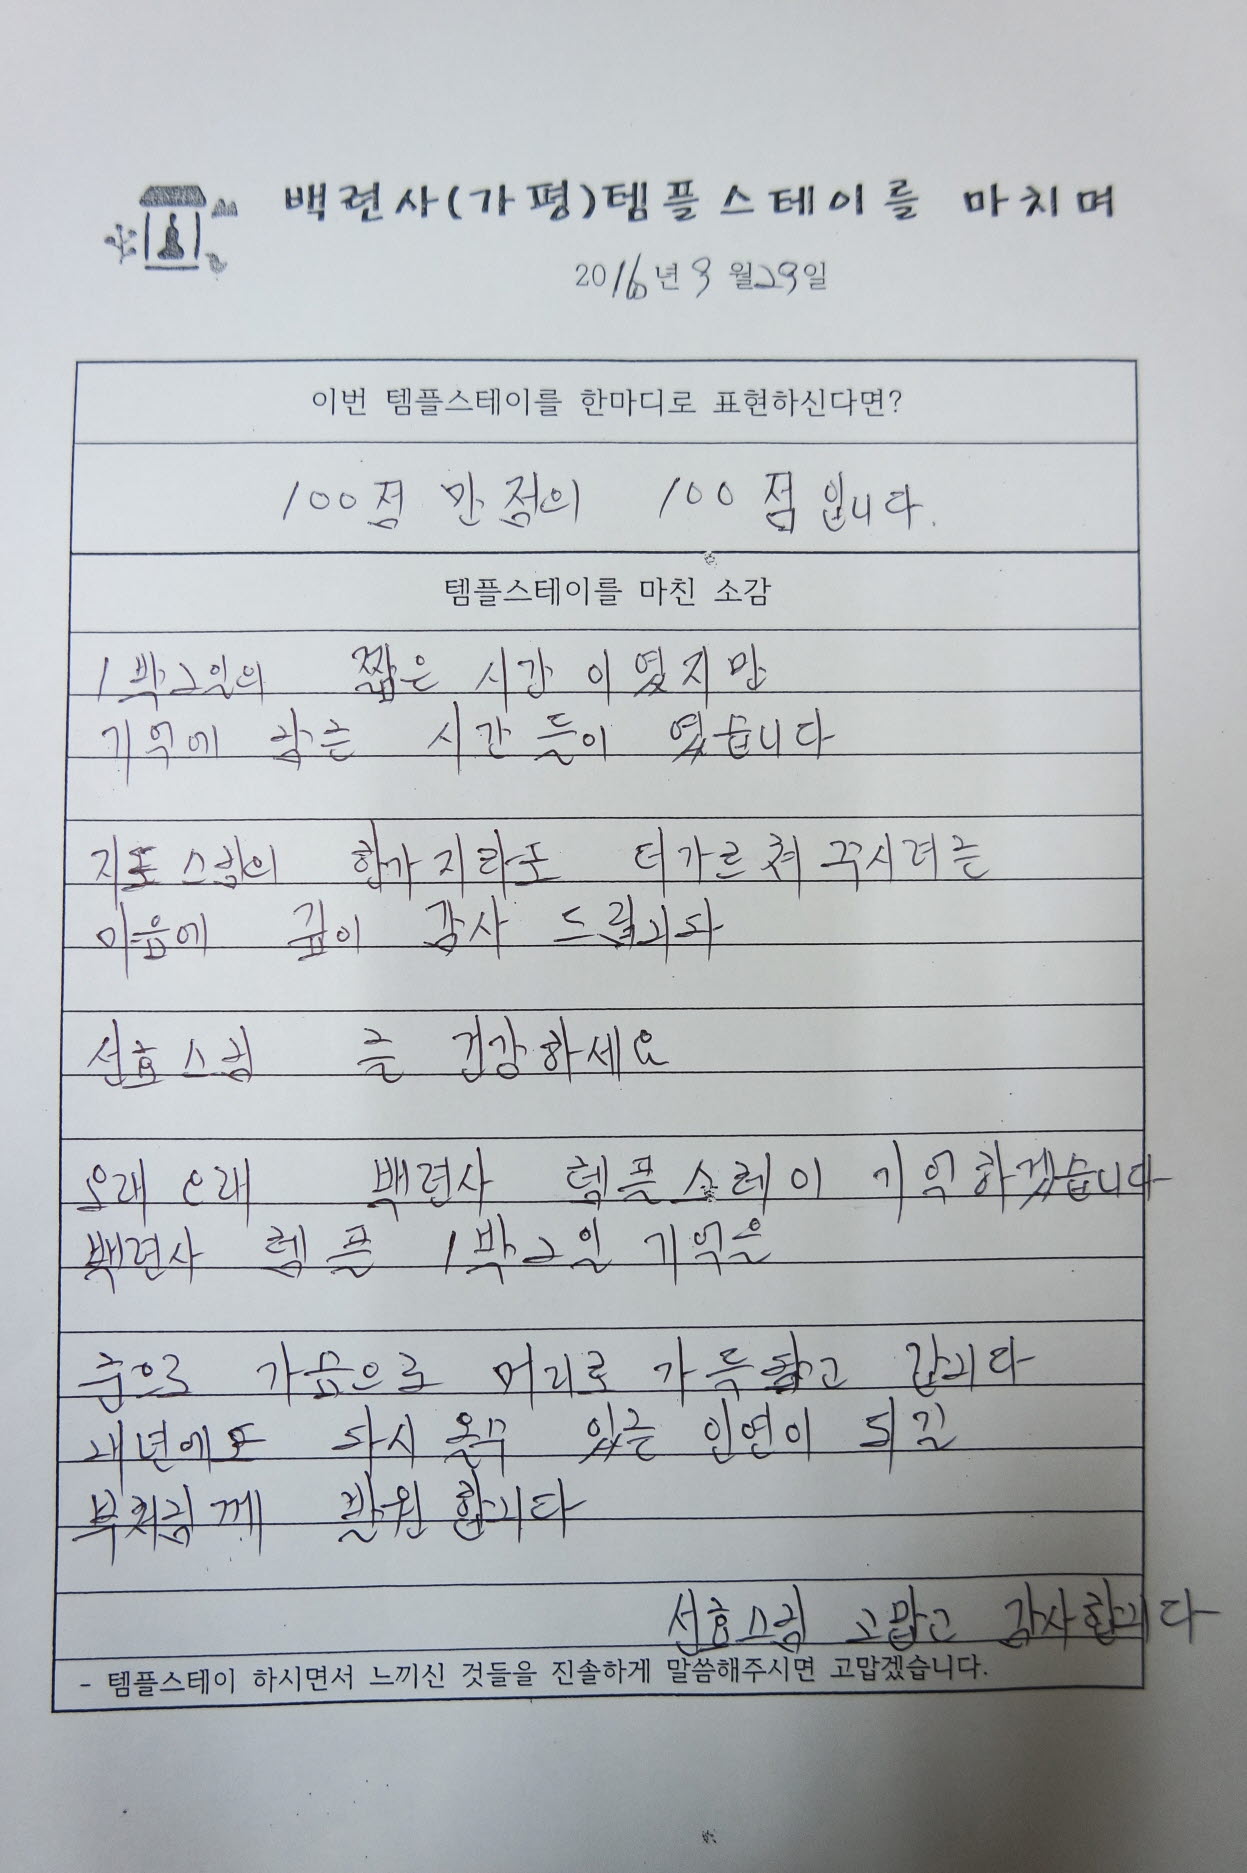 백련사(가평)템플스테이를 마치며
2016년 9월29일
이번 템플스테이를 한마디로 표현하신다면?
100점 만점의 100점 입니다.
템플스테이를 마친 소감
1박2일의 짧은 시간 이였지만
기억에 남는 시간들이 였습니다
지도스님의 한가지라도 더가르쳐 주시려는
마음에 깊이 감사 드립니다
선효스님 늘 건강하세요
오래오래 백련사 템플스테이 기억하겠습니다
백련사 템플 1박2일 기억을
눈으로 가슴으로 머리로 가득담고 갑니다
내년에도 다시 올수 있는 인연이 되길
부처님께 발원합니다
선효스님 고맙고 감사합니다
- 템플스테이 하시면서 느끼신 것들을 진솔하게 말씀해주시면 고맙겠습니다.